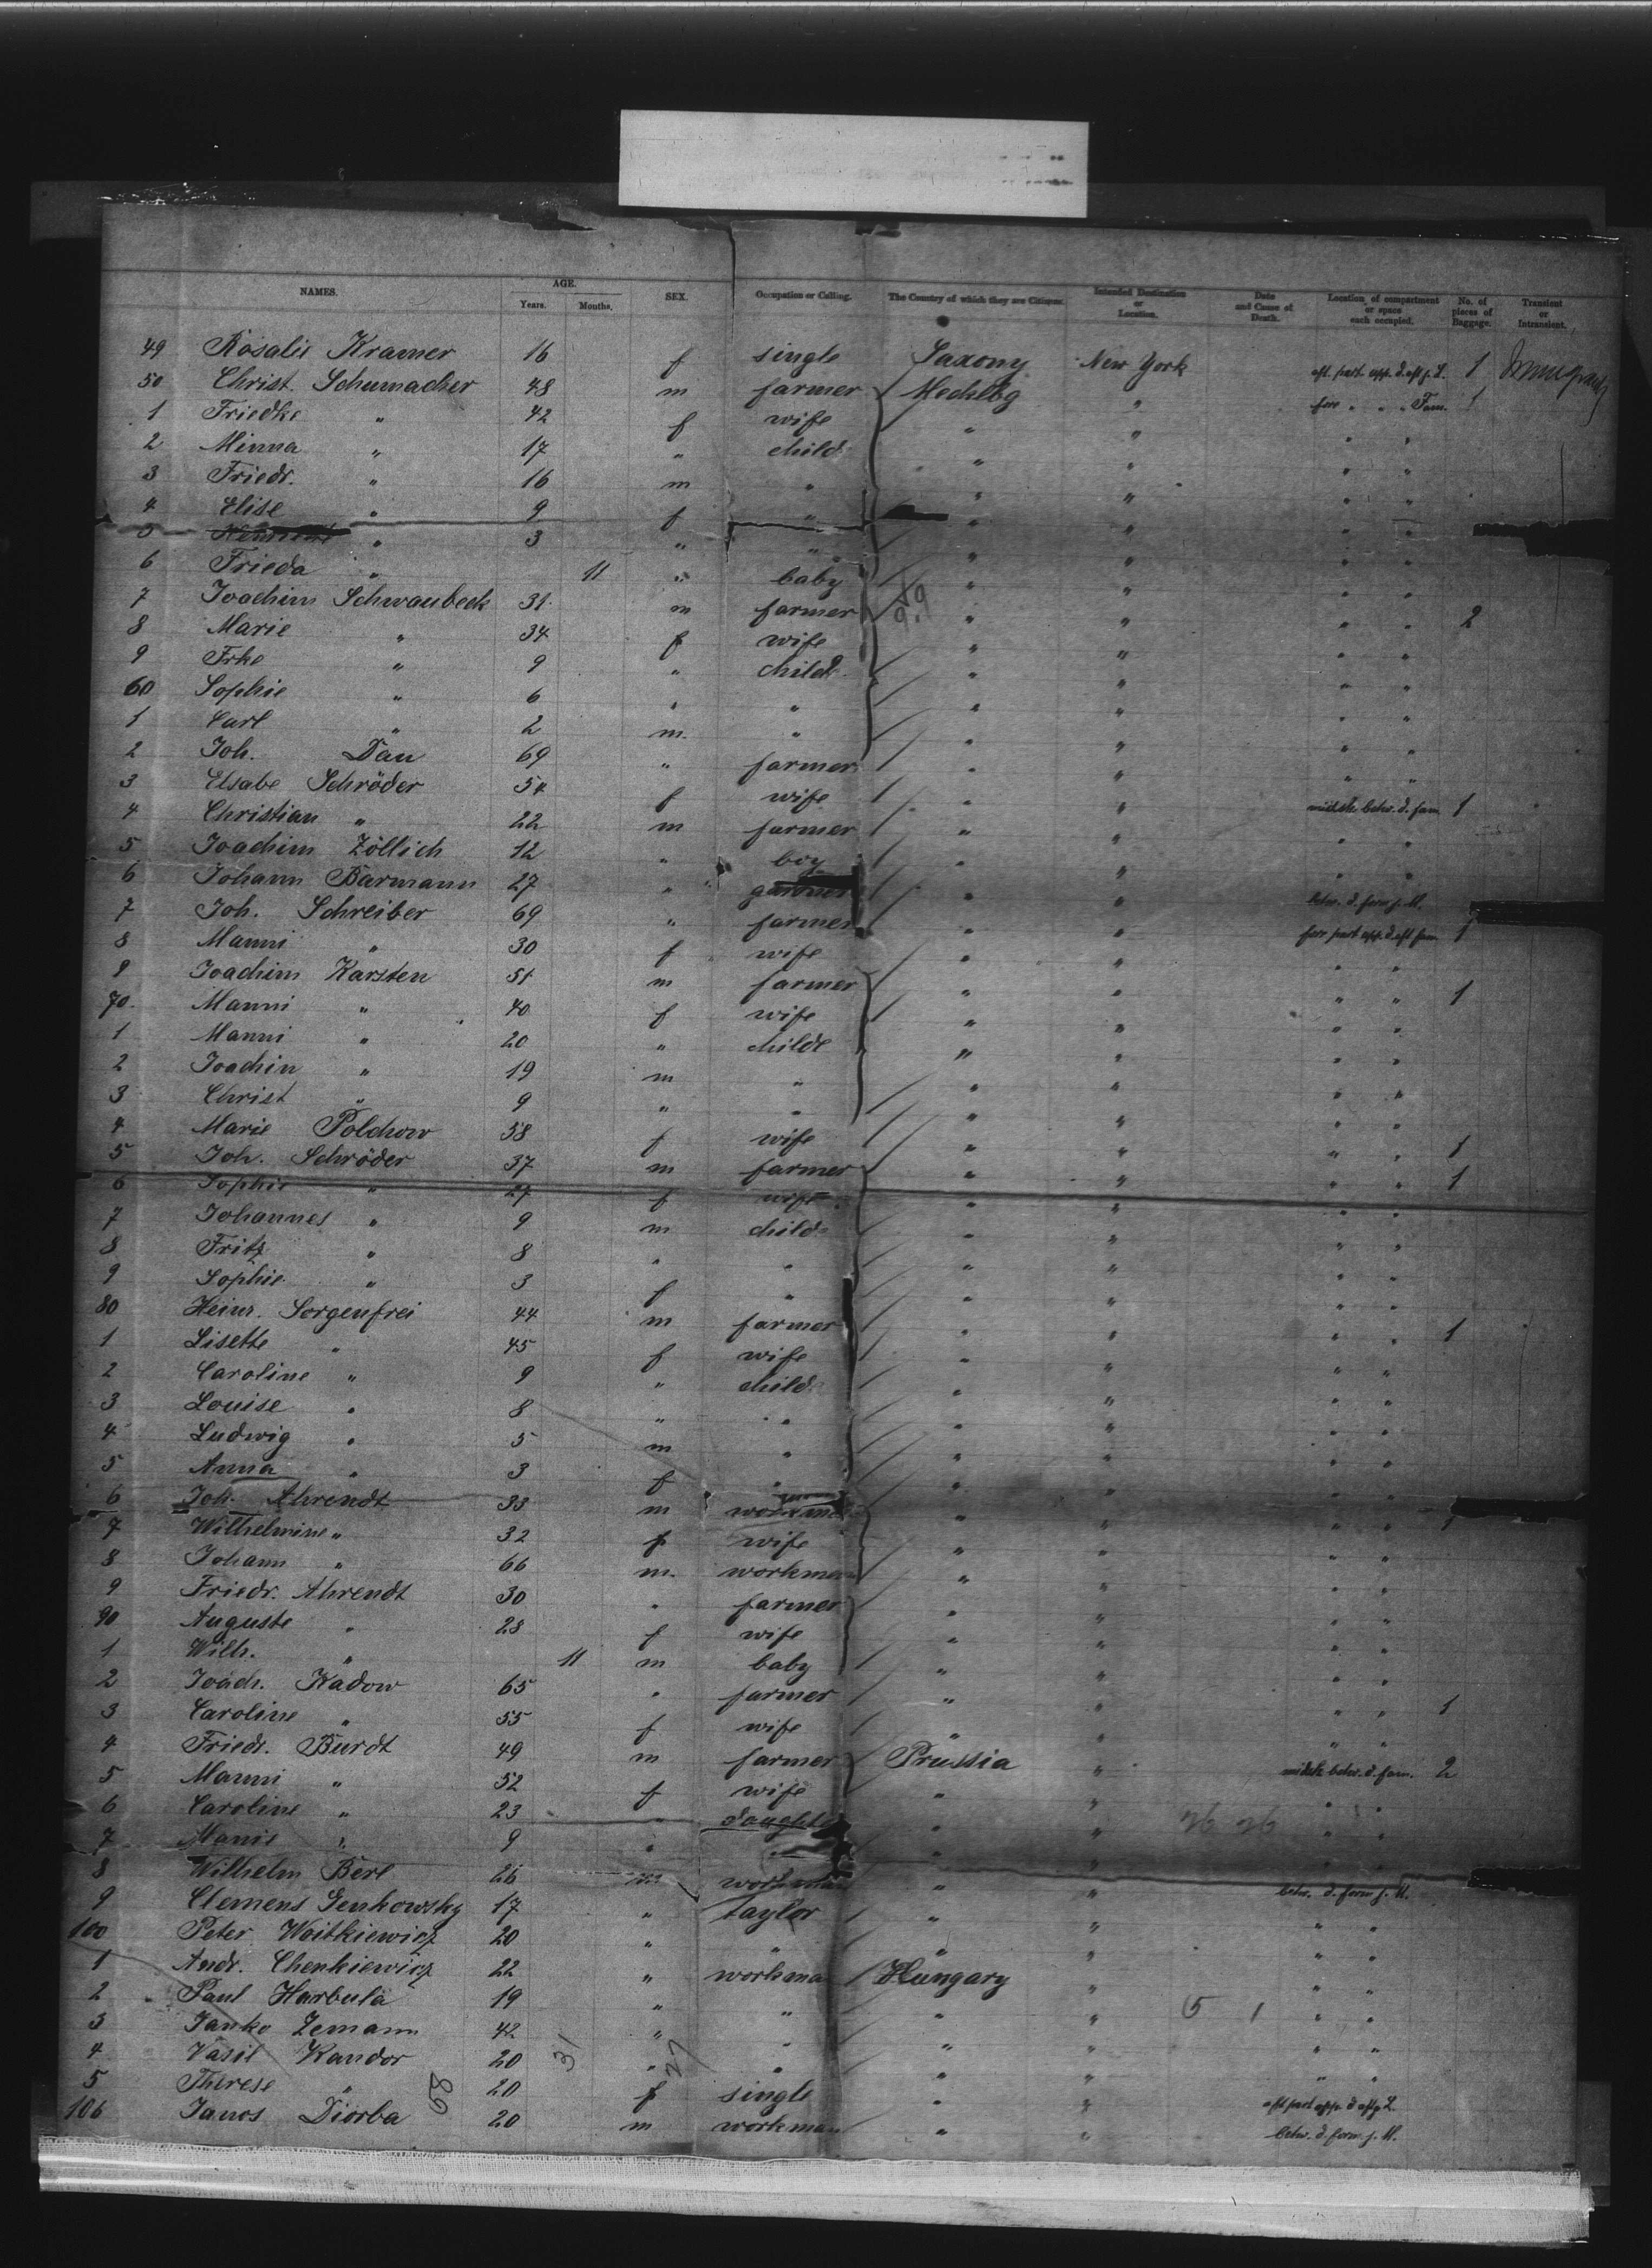 NAMES. AGE. Years. Months. SEX. Occupation or Calling. The Country of which they are Citizens. Intended Destination or Location. Date and Cause of Death. Location of compartment or space each occupied. No. of pieces of Baggage. Transient or Intransient.
49 Rosalie Kramer 16 f single Saxony New York aft. part. upp. d. aft j. L. 1
50 Christ. Schumacher 48 m farmer Mecklbg " forr " " " Fam. 1
1 Friedke " 42 f wife " " " "
2 Minna " 17 " child " " " "
3 Friedr. " 16 m " " " " "
4 Elise " 9 f " " " " "
5 " 3 " " " " " "
6 Frieda " 11 " baby " " " "
7 Joachim Schwaubeck 31 m farmer " " " " 2
8 Marie " 34 f wife " " " "
9 Frke " 9 " child " " " "
60 Sophie " 6 " " " " " "
1 Carl " 2 m. " " " " "
2 Joh. Dau 69 " farmer " " " "
3 Elsabe Schröder 54 f wife " " middle betw. d. fam 1
4 Christian " 22 m farmer " " " "
5 Joachim Zöllich 12 " boy " " " "
6 Johann Barmann 27 " gardner " " betw. d. forw j. M.
7 Joh. Schreiber 69 " farmer " " forr part upp. d. aft fam 1
8 Manni " 30 f wife " " " "
9 Joachim Karsten 51 m farmer " " " " 1
70. Manni " 40 f wife " " " "
1 Manni " 20 " child " " " "
2 Joachin " 19 m " " " " "
3 Christ " 9 " " " " " "
4 Marie Polchow 58 f wife " " " " 1
5 Joh. Schröder 37 m farmer " " " " 1
6 Sophie " 27 f wife " " " "
7 Johannes " 9 m child " " " "
8 Fritz " 8 " " " " " "
9 Sophie " 3 f " " " " "
80 Heinr. Sorgenfrei 44 m farmer " " " " 1
1 Lisette " 45 f wife " " " "
2 Caroline " 9 " child " " " "
3 Louise " 8 " " " " " "
4 Ludwig " 5 m " " " " "
5 Anna " 3 f " " " " "
6 Joh. Ahrendt 33 m workman " " " " 1
7 Wilhelmine " 32 f wife " " " "
8 Johann " 66 m. workman " " " "
9 Friedr. Ahrendt 30 " farmer " " " "
90 Auguste " 28 f wife " " " "
1 Wilh. " 11 m baby " " " "
2 Joach. Kadow 65 " farmer " " " " 1
3 Caroline " 55 f wife " " " "
4 Friedr. Burdt 49 m farmer Prussia " middle betw. d. fam. 2
5 Manni " 52 f wife " " " "
6 Caroline " 23 " daughter " " " "
7 " 9 " " " " " "
8 Wilhelm Berl 26 m workman " " betw. d. forw j. M.
9 Clemens Genkowsky 17 " taylor " " " "
100 Peter Woitkiewicz 20 " " " " " "
1 Andr. Chenkiewicz 22 " workman Hungary " " "
2 Paul Harbula 19 " " " " " "
3 Janko Zemann 42 " " " " " "
4 Vasil Kandor 20 " " " " " "
5 Therese " 20 f single " " aft part upp. d aft j. L
106 Janos Diorba 20 m workman " " betw. d. forw. j. M.
68 31 27